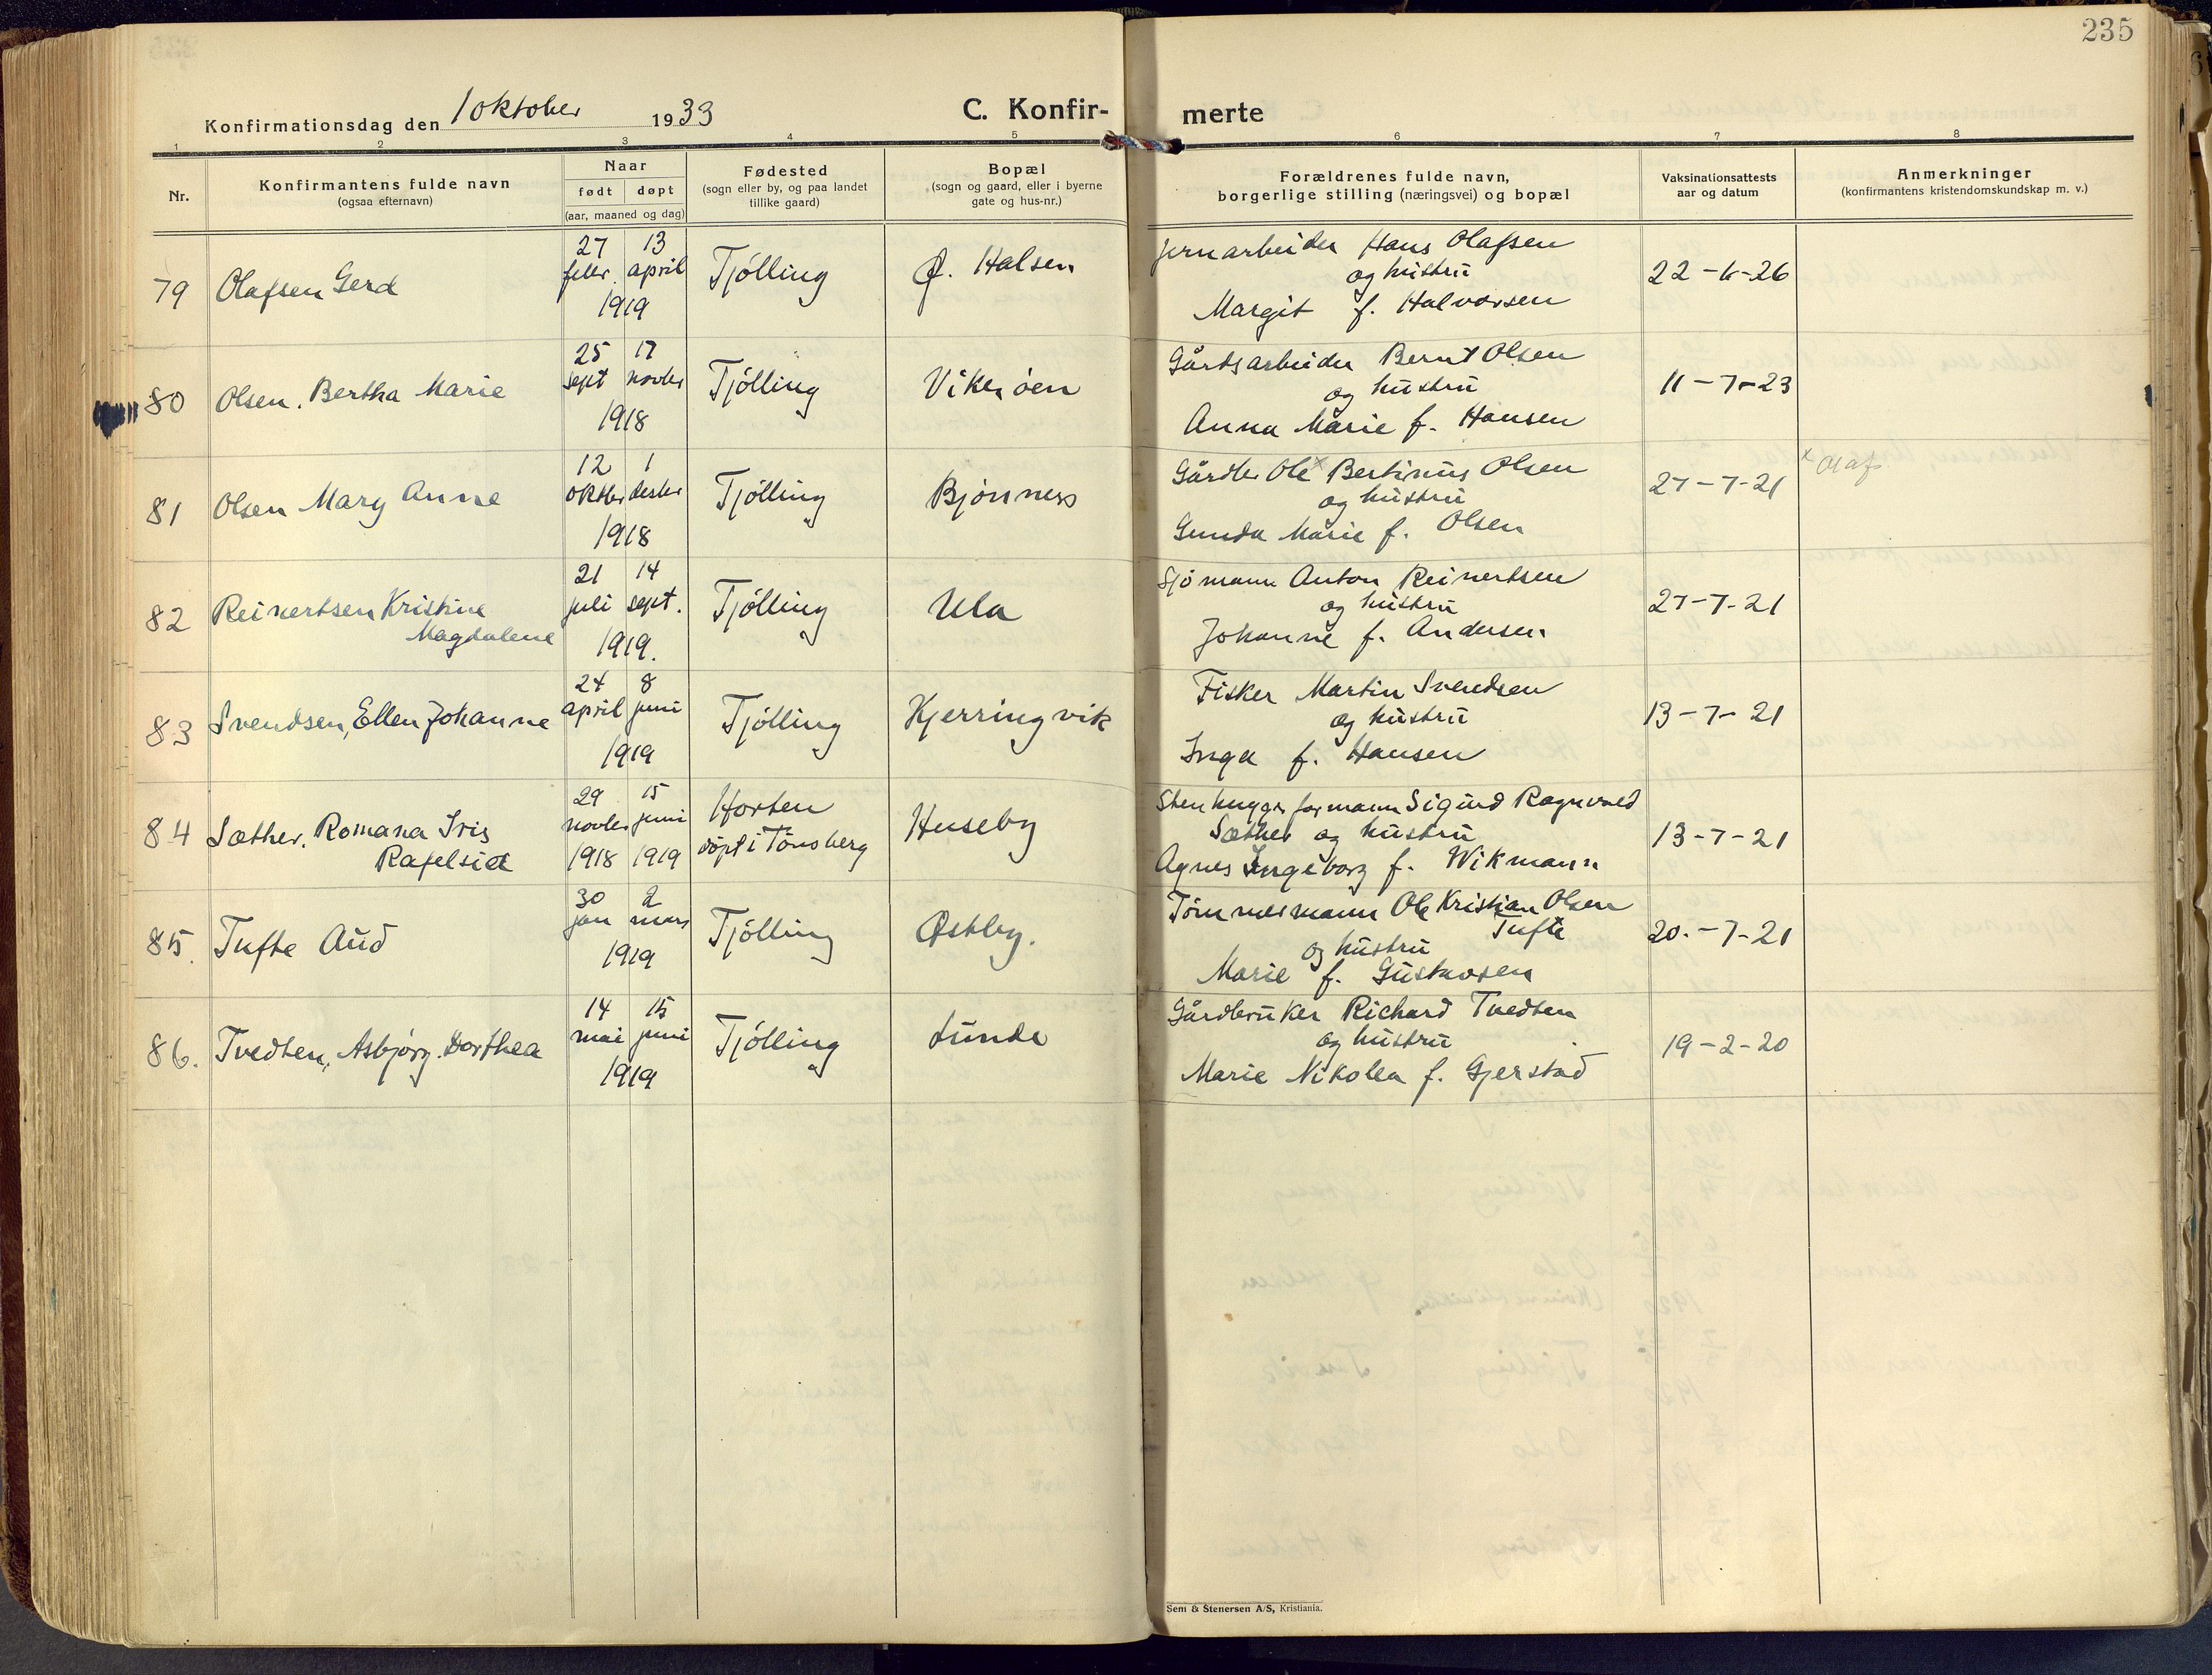 235
Konfirmationsdag den 1 oktober 1933
C. Konfir-
merte
1 2 3 4 5 6 7 8
Nr.
Konfirmantens fulde navn
(ogsaa efternavn)
Naar
født døpt
(aar, maaned og dag)
Fødested
(sogn eller by, og paa landet
tillike gaard)
Bopæl
(sogn og gaard, eller i byerne
gate og hus-nr.)
Forældrenes fulde navn,
borgerlige stilling (næringsvei) og bopæl
Vaksinationsattests
aar og datum
Anmerkninger
(konfirmantens kristendomskundskap m. v.)
79 Olafsen Gerd
27 13
febr. april
1919
Tjølling
Ø. Halsen
Jernarbeider Hans Olafsen
og hustru
Margit f. Halvorsen
22-6-26
80 Olsen, Bertha Marie
25 17
sept novbr
1918
Tjølling
Vikerøen
Gårdsarbeider Bernt Olsen
og hustru
Anna Marie f. Hansen
11-7-23
81 Olsen Mary Anne
12 1
oktbr desbr
1918
Tjølling
Bjønnes
Gårdbr Ole x Bertinius Olsen
og hustru
Gunda Marie f. Olsen
27-7-21
x Olaf
82 Reinertsen Kristine
Magdalene
21 14
juli sept.
1919.
Tjølling
Ula
Sjømann Anton Reinertsen
og hustru
Johanne f. Andersen
27-7-21
83 Svendsen, Ellen Johanne
24 8
april juni
1919
Tjølling
Kjerringvik
Fisker Martin Svendsen
og hustru
Inga f. Hansen
13-7-21
84 Sæther, Romana Iris
29 15
novbr juni
1918 1919
Horten
døpt i Tönsberg
Huseby
Stenhuggerformann Sigurd Ragnvald
Sæther og hustru
Agnes Ingeborg f. Wikmann
13-7-21
85. Tufte Aud
30 2
jan mars
1919
Tjølling
Østby.
Tømmermann Ole Kristian Olsen
Tufte
og hustru
Marie f. Gustavsen
20.-7-21
86. Tvedten, Asbjørg Dorthea
14 15
mai juni
1919
Tjølling
Lunde
Gårdbruker Richard Tvedten
og hustru
Marie Nikolea f. Gjerstad
19-2-20
Sem & Stenersen A/S, Kristiania.